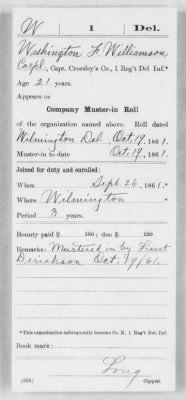 W 1 Del.
Washington F. Williamson
Corpl., Capt. Crossley's Co., 1 Reg't Del. Inf.*
Age 21 years.
Appears on
Company Muster-in Roll
of the organization named above. Roll dated
Wilmington Del. Oct. 19, 1861.
Muster-in to date Oct. 19, 1861.
Joined for duty and enrolled:
When Sept. 26, 1861.*
Where Wilmington
Period 3 years.
Bounty paid $ 100; due $ 100
Remarks: Mustered in by Lieut
Derickson Oct. 19/61.
*This organization subsequently became Co. K, 1 Reg't Del. Inf.
Book mark:
Long
(356) Copyist.